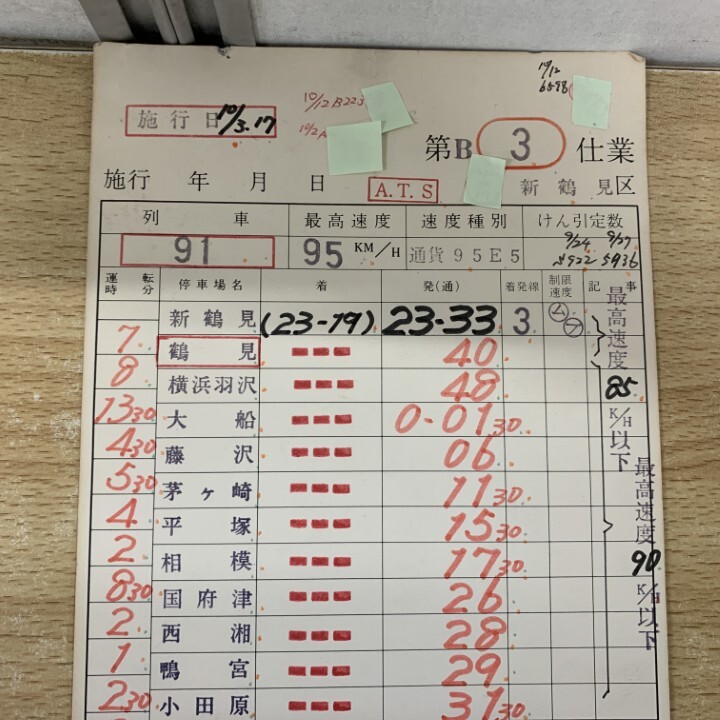 10/12
6598
10/12 B223
施行日 10/3.17
10/2 A
第B 3 仕業
施行 年 月 日 A.T.S 新鶴見区
列車 最高速度 速度種別 けん引定数
91 95 KM/H 通貨95E5 9/24 9/27
5936
運転時分 停車場名 着 発(通) 着発線 制限速度 記事
新鶴見 (23-19) 23-33 3
7 鶴見 40
8 横浜羽沢 48
1330 大船 0-0130
430 藤沢 06
530 茅ヶ崎 1130
4 平塚 1530
2 相模 1730
830 国府津 26
2 西湘 28
1 鴨宮 29
230 小田原 3130
最高速度85K/H以下
最高速度90K/H以下